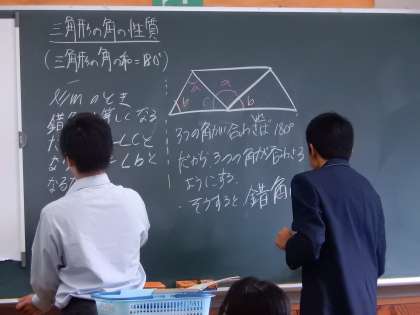 三角形の角の性質
(三角形の角の和=180°)
l//mのとき
錯
しくなる
∠Cと
∠bと
なる
a
a
b
c
b
3つの角が合わされば180°
だから3つの角が合わさる
ようにする。
・そうすると、錯角